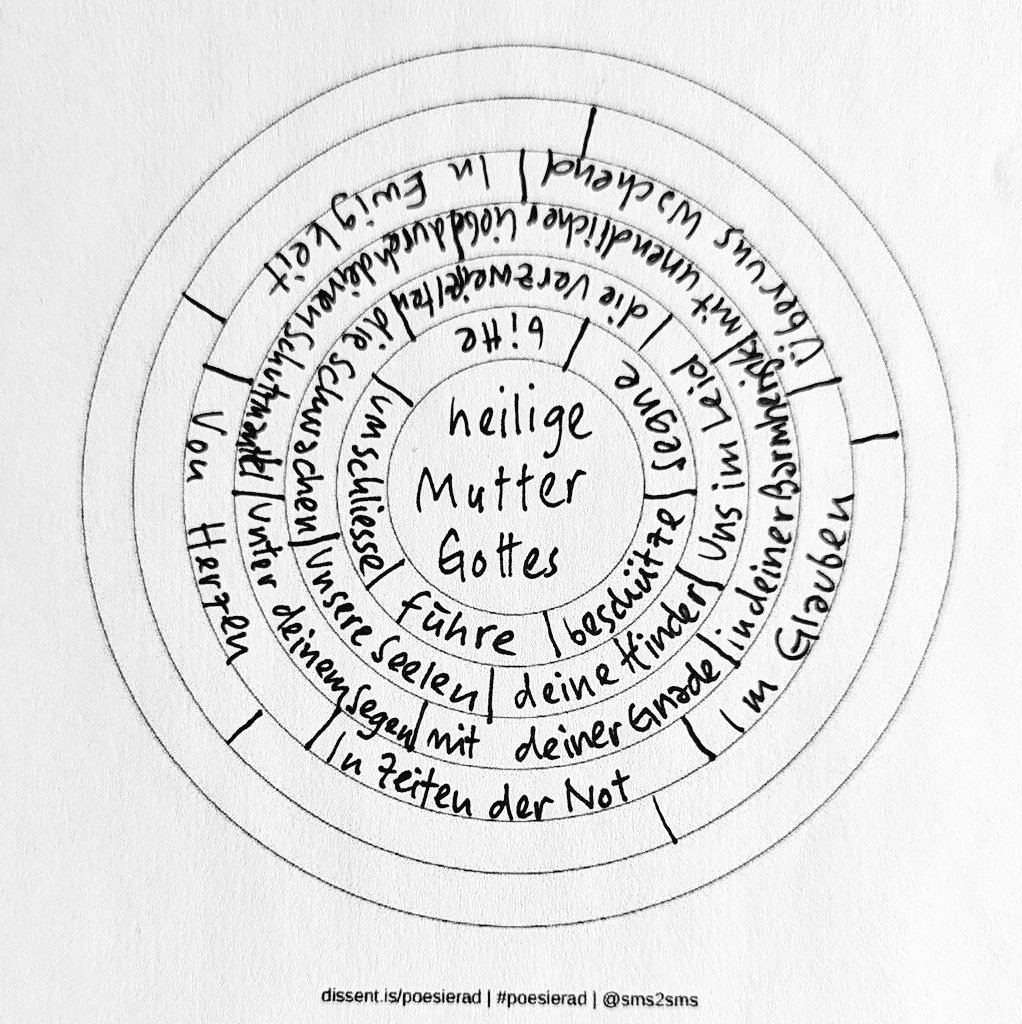 heilige
Mutter
Gottes
bitte
segne
beschütze
führe
umschliesse
die verzweifelten
uns im Leid
deine Kinder
unsere Seelen
die schwachen
mit unendlicher Liebe
in deiner Barmherzigk
mit deiner Gnade
unter deinem segen
durch deinen Schutzmantel
über uns wachend
im Glauben
In Zeiten der Not
Von Herzen
In Ewigkeit
dissent.is/poesierad | #poesierad | @sms2sms